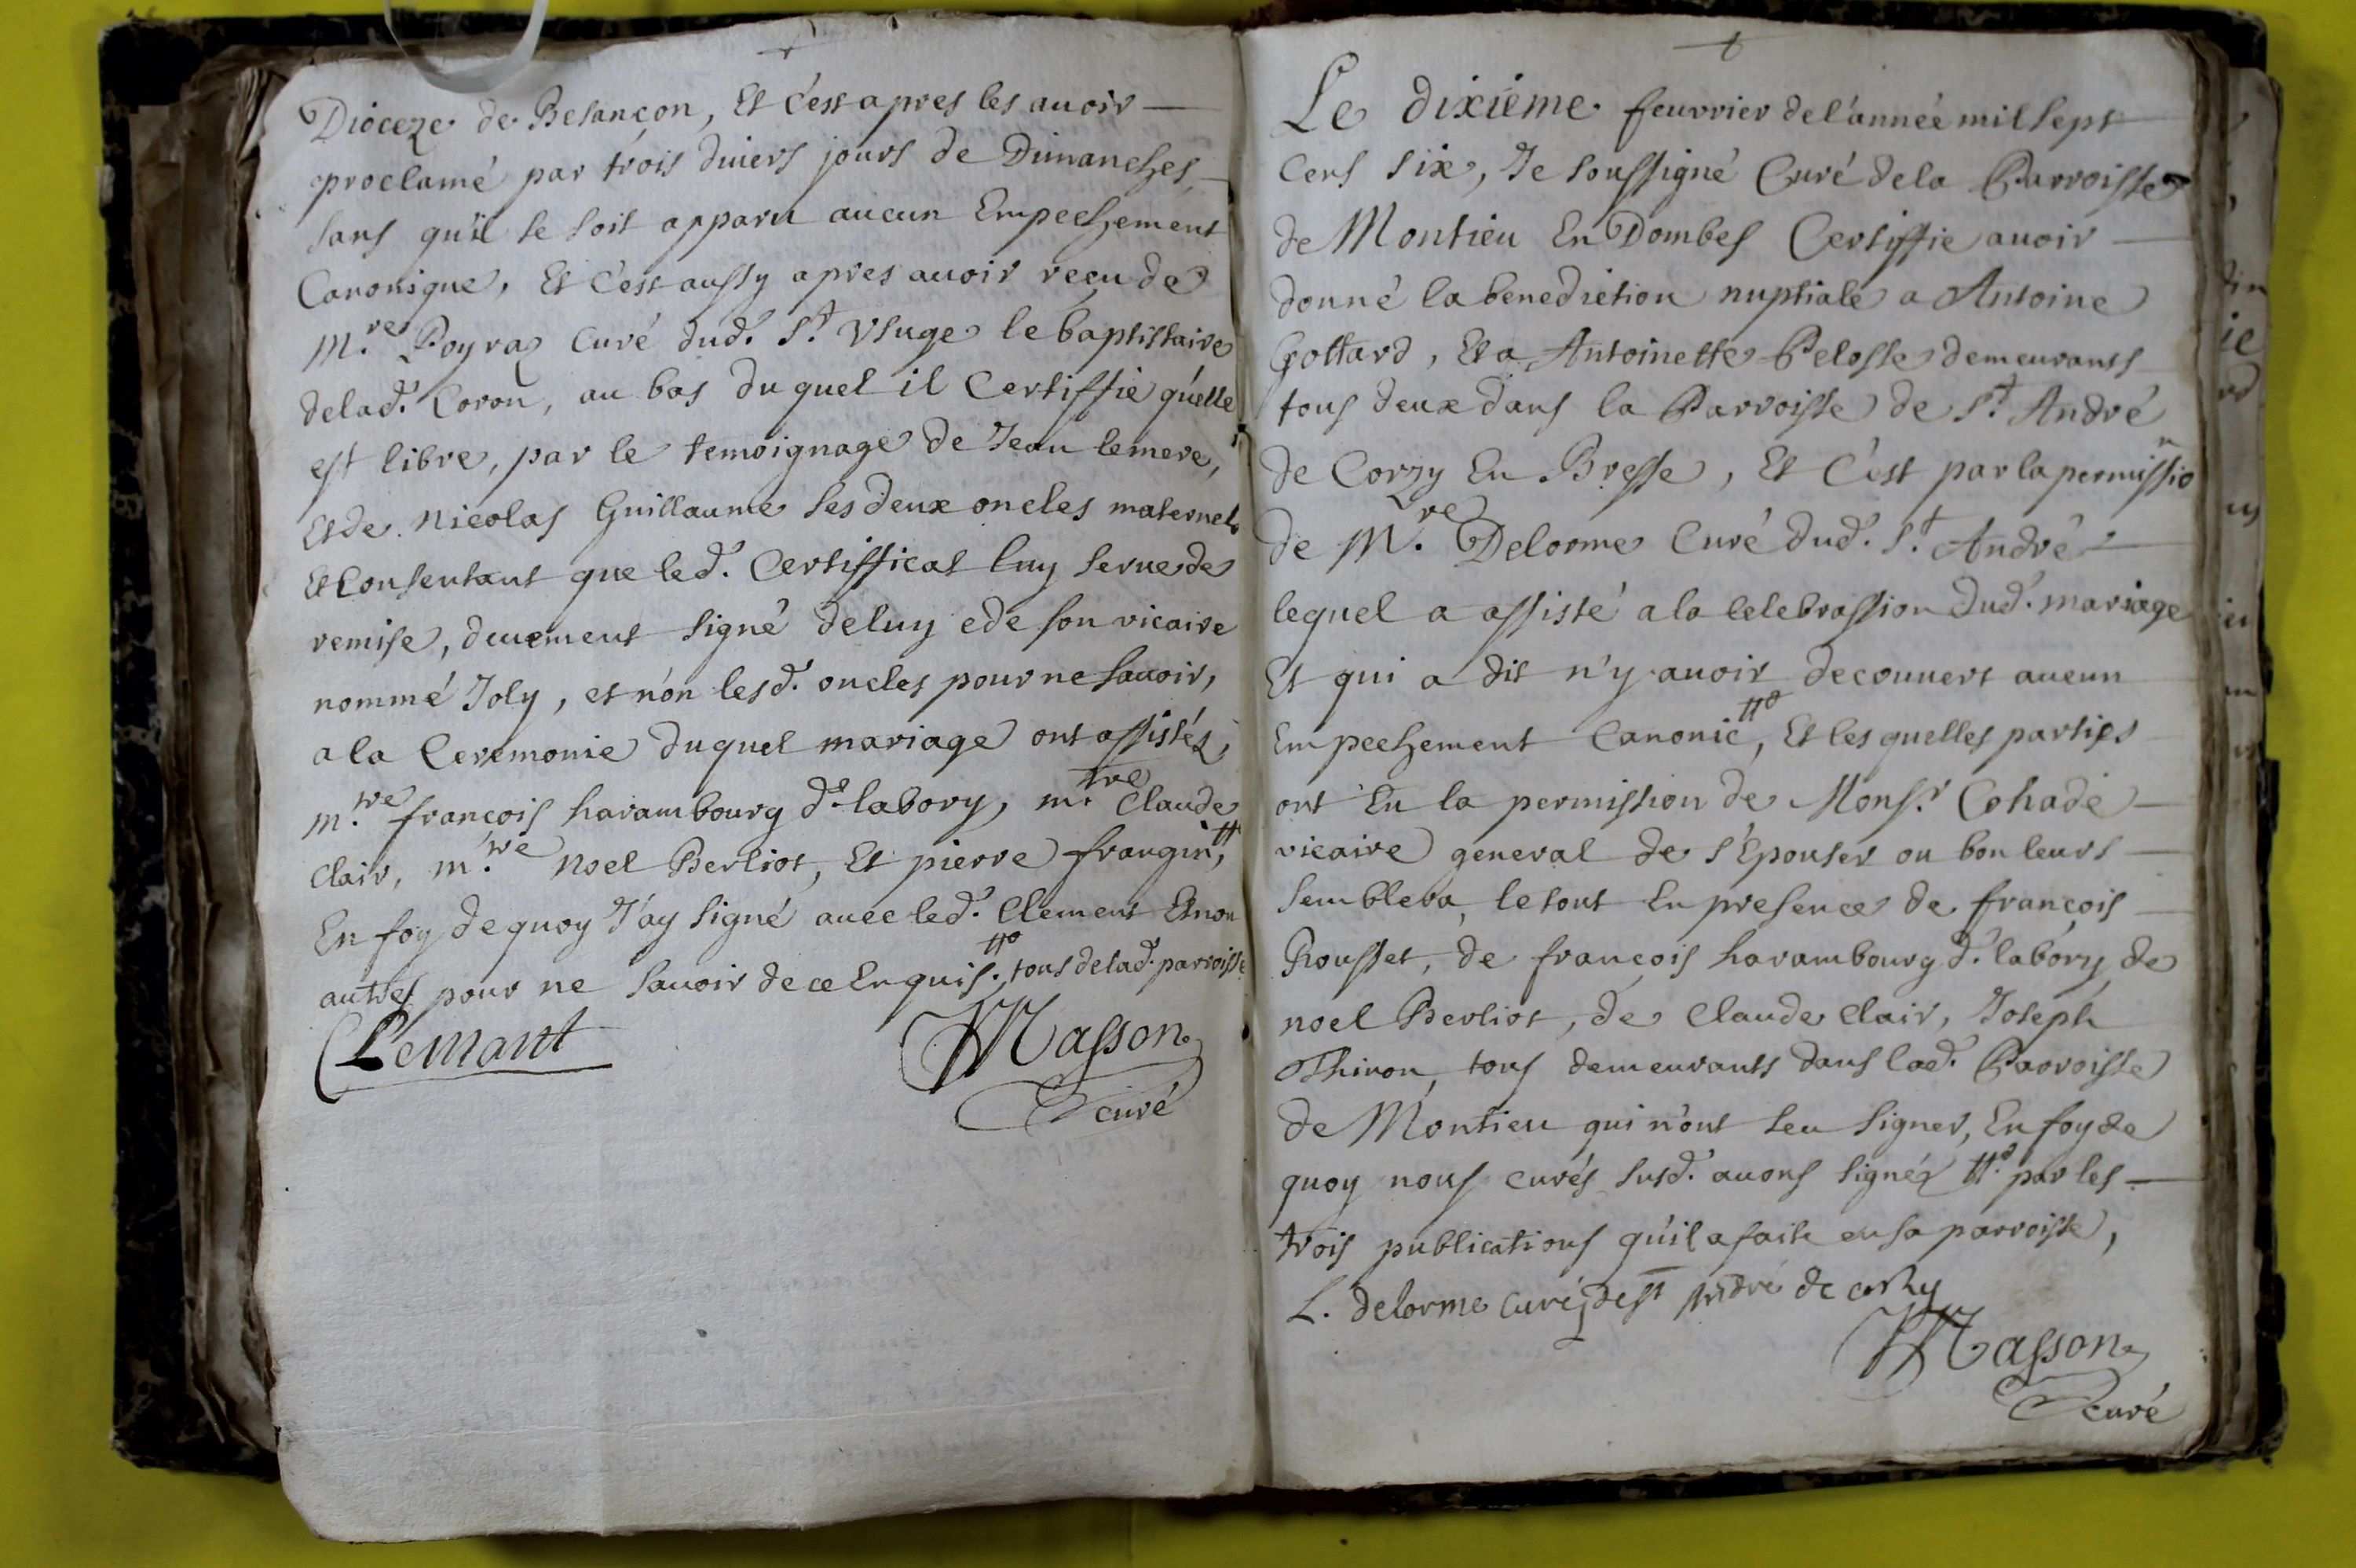 Dioceze de Besançon, Et c'est apres les auoir
proclamé par trois diuers jours de Dimanches,
sans qu'il se soit apparu aucun Empechement
Canonique, Et c'est aussy apres auoir reçu de
M.re Poyraz Curé dud. St. Vsuge le baptistaire
delad. Coron, au bas du quel il Certiffie qu'elle
est libre, par le temoignage de Jean lemere,
Et de Nicolas Guillaume ses deux oncles maternels
Et Consentant que led. Certifficat luy serue de
remise, deuement signé deluy ede son vicaire
nommé Joly, et n'on lesd. oncles pour ne sauoir,
a la Ceremonie duquel mariage ont assistéz,
m.tre françois harambourg d. labory, m.tre Claude
Clair, m.tre Noel Berliot, Et pierre frangin, #
En foy de quoy J'ay signé auec led. Clement Et non
autres pour ne sauoir de ce Enquis. # tous delad. parroisse
Clemant
Masson
curé
Le dixiême feuurier de l'année mil sept
Cens six, Je soussigné Curé dela Parroisse
de Montieu En Dombes Certiffie auoir
donné la benediction nuptiale a Antoine
Gottard, Et a Antoinette Pelosse demeurants
tous deux dans la Parroisse de St. André
de Corzy En Bresse, Et C'est par la permissio n
de M.re Delorme Curé dud. St. André
lequel a assisté a la Celebrassion dud. mariage
Et qui a dit n'y auoir decouuert aucun
Empechement Canonic #, Et les quelles parties
ont Eu la permission de Mons.r Cohade
vicaire general de s'Epouser ou bon leurs
semblera, le tout En presence de françois
Rousset, de françois harambourg d. labory, de
noel Berliot, de Claude Clair, Joseph
Thiron, tous demeurants dans lad. Parroisse
de Montieu qui n'ont seu signer, En foy de
quoy nous curés susd. auons signéz # par les
trois publications qu'il a faite en sa parroisse,
L. delorme curé de st André de corzy
Masson
curé